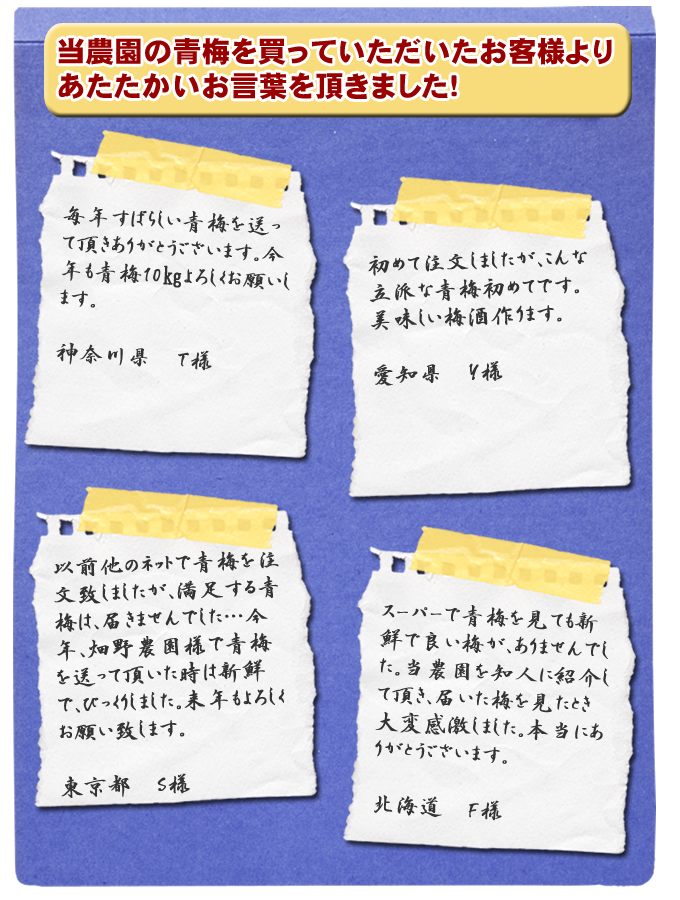 当農園の青梅を買っていただいたお客様より
あたたかいお言葉を頂きました!
毎年すばらしい青梅を送っ
て頂きありがとうございます。今
年も青梅10kgよろしくお願いし
ます。
神奈川県 T様
初めて注文しましたが、こんな
立派な青梅初めてです。
美味しい梅酒作ります。
愛知県 Y様
以前他のネットで青梅を注
文致しましたが、満足する青
梅は、届きませんでした…今
年、畑野農園様で青梅
を送って頂いた時は新鮮
で、びっくりしました。来年もよろしく
お願い致します。
東京都 S様
スーパーで青梅を見ても新
鮮で良い梅が、ありませんでし
た。当農園を知人に紹介し
て頂き、届いた梅を見たとき
大変感激しました。本当にあ
りがとうございます。
北海道 F様